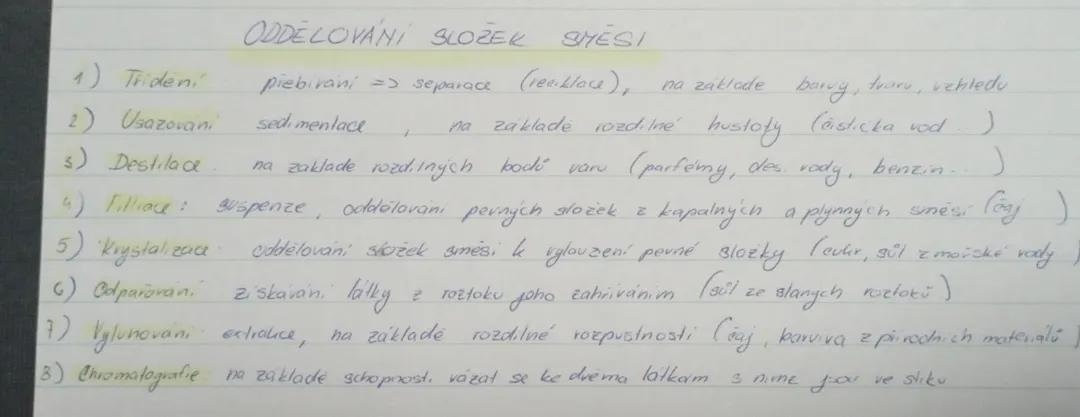 ODDĚLOVÁNÍ SLOŽEK SMĚSI
1) Třídění přebírání => separace (reciklace), na základě barvy, tvaru, vzhledu
2) Usazování sedimentace, na základě rozdílné hustoty (čistička vod...)
3) Destilace na základě rozdílných bodů varu (parfémy, des. vody, benzin...)
4) Filtrace: suspenze, oddělování pevných složek z kapalných a plynných směsí (čaj )
5) Krystalizace oddělování složek směsi k vyloučení pevné složky (cukr, sůl z mořské vody)
6) Odpařování získávání látky z roztoku jeho zahříváním (sůl ze slaných roztoků)
7) Vyluhování extrakce, na základě rozdílné rozpustnosti (čaj, barviva z přírodních materiálů)
8) Chromatografie na základě schopnosti vázat se ke dvěma látkám s nimž jsou ve styku